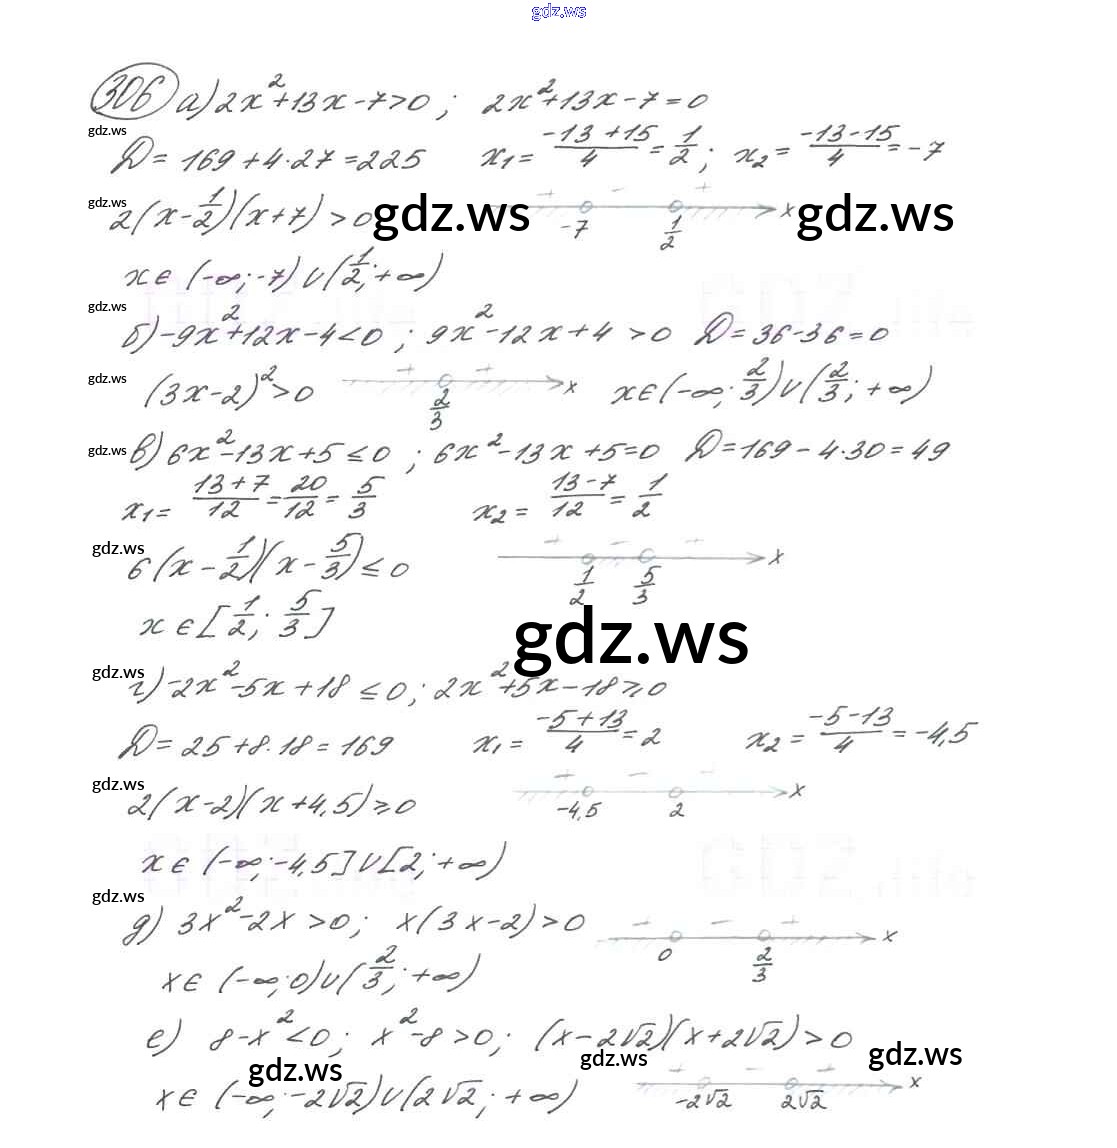 gdz.ws
306 а) 2x²+13x-7>0 ; 2x²+13x-7=0
gdz.ws
D = 169+4·27=225 x₁= (-13+15)/4 = 1/2 ; x₂= (-13-15)/4 = -7
gdz.ws
2(x-1/2)(x+7)>0 gdz.ws + - + x gdz.ws
-7 1/2
x ∈ (-∞;-7)∪(1/2;+∞)
gdz.ws
б) -9x²+12x-4<0 ; 9x²-12x+4>0 D=36-36=0
gdz.ws
(3x-2)²>0 + + x x∈(-∞;2/3)∪(2/3;+∞)
2/3
gdz.ws
в) 6x²-13x+5≤0 ; 6x²-13x+5=0 D=169-4·30=49
x₁= (13+7)/12 = 20/12 = 5/3 x₂= (13-7)/12 = 1/2
gdz.ws
6(x-1/2)(x-5/3)≤0 + - + x
1/2 5/3
x ∈ [1/2; 5/3]
gdz.ws
gdz.ws
г) -2x²-5x+18≤0; 2x²+5x-18≥0
D=25+8·18=169 x₁= (-5+13)/4 = 2 x₂= (-5-13)/4 = -4,5
gdz.ws
2(x-2)(x+4,5)≥0 + - + x
-4,5 2
x ∈ (-∞;-4,5]∪[2;+∞)
gdz.ws
д) 3x²-2x>0; x(3x-2)>0 + - + x
0 2/3
x∈ (-∞;0)∪(2/3;+∞)
е) 8-x²<0; x²-8>0; (x-2√2)(x+2√2)>0
gdz.ws gdz.ws gdz.ws
x∈ (-∞;-2√2)∪(2√2;+∞) + - + x
-2√2 2√2